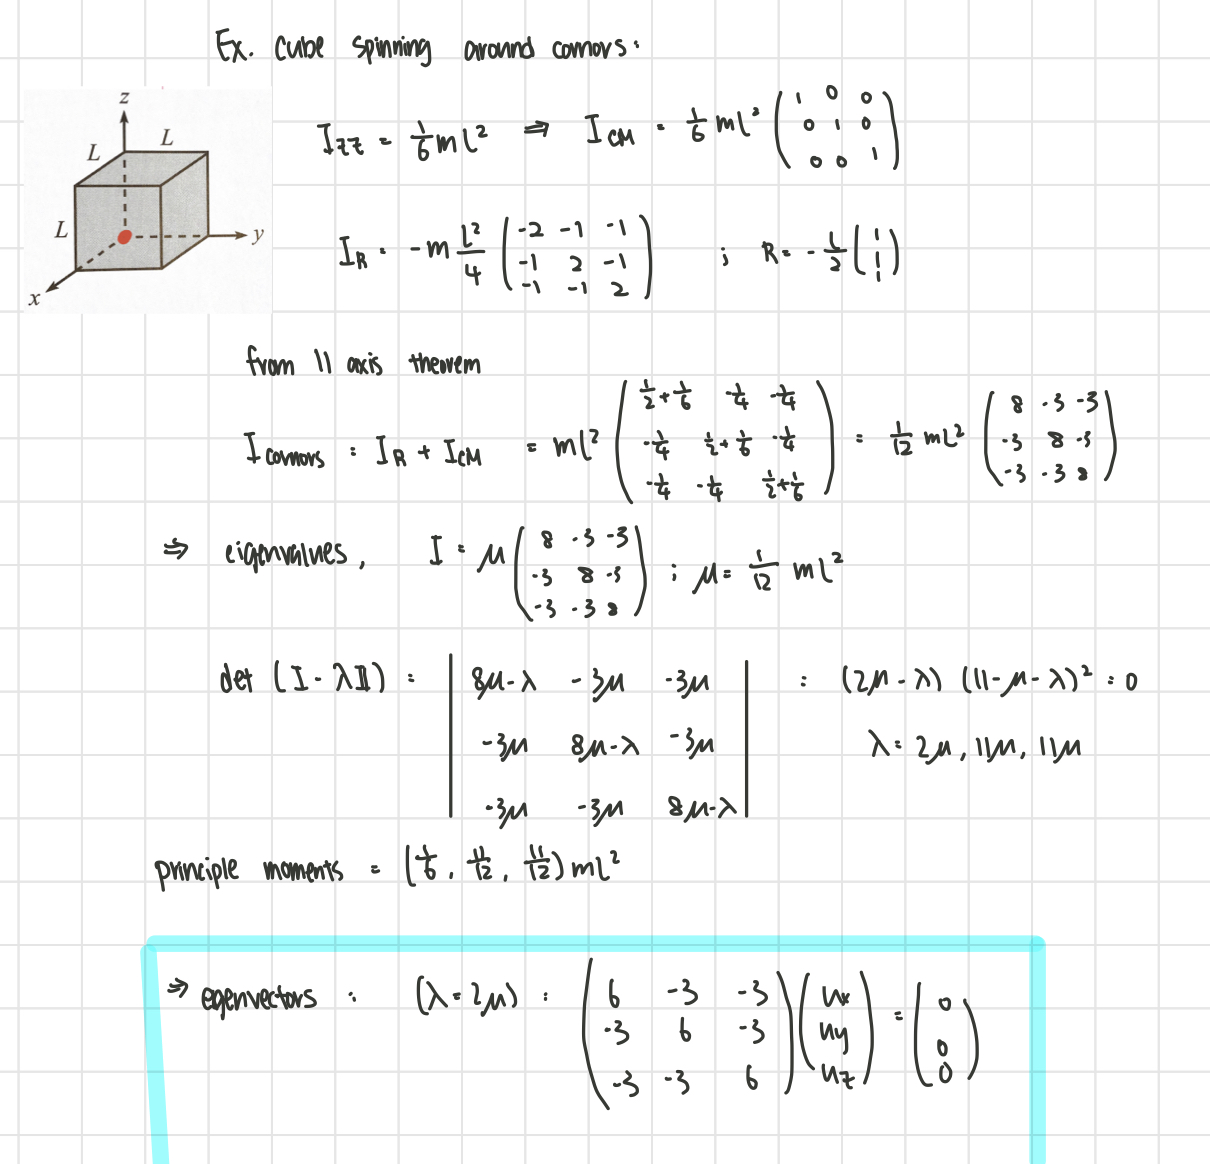 Ex. Cube spinning around cornors:
z
L
L
L
y
x
I_zz = 1/6 ml² ⇒ I_CM = 1/6 ml² (1 0 0
0 1 0
0 0 1)
I_R = -m L²/4 (-2 -1 -1
-1 2 -1
-1 -1 2) ; R = -L/2 (1
1
1)
from || axis theorem
I_cornors = I_R + I_CM = ml² (1/2+1/6 -1/4 -1/4
-1/4 1/2+1/6 -1/4
-1/4 -1/4 1/2+1/6) = 1/12 ml² (8 -3 -3
-3 8 -3
-3 -3 8)
⇒ eigenvalues, I = μ (8 -3 -3
-3 8 -3
-3 -3 8) ; μ = 1/12 ml²
det (I - λ𝕀) = |8μ-λ -3μ -3μ
-3μ 8μ-λ -3μ
-3μ -3μ 8μ-λ| = (2μ-λ) (11-μ-λ)² = 0
λ = 2μ, 11μ, 11μ
principle moments = (1/6, 11/12, 11/12) ml²
⇒ egenvectors : (λ=2μ) : (6 -3 -3
-3 6 -3
-3 -3 6) (ux
uy
uz) = (0
0
0)